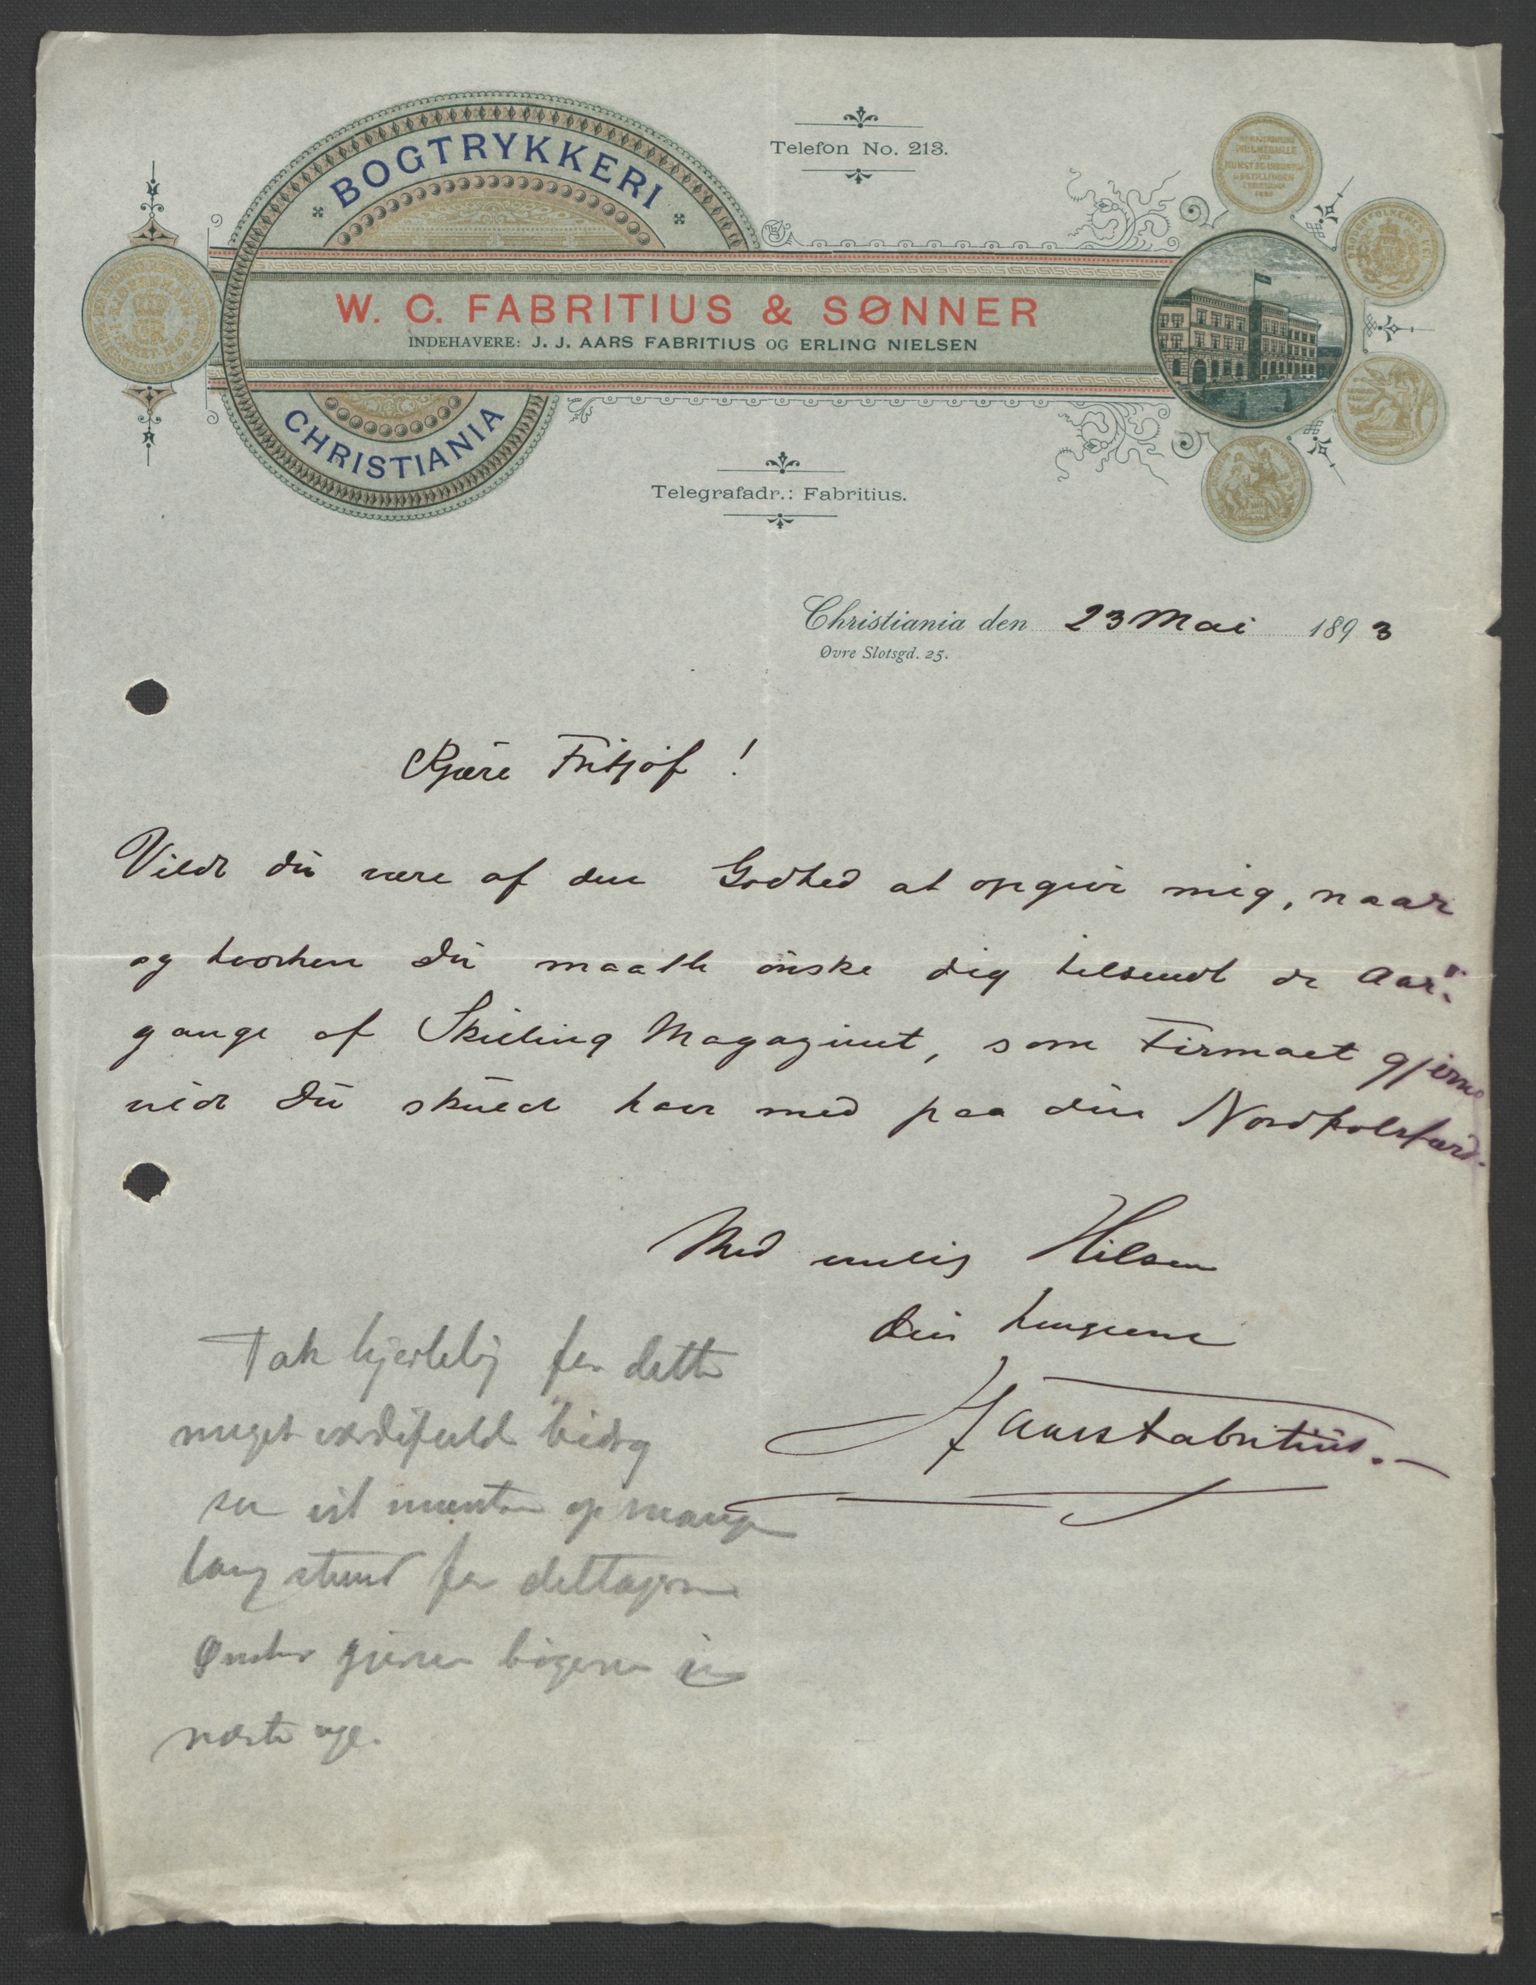 BOGTRYKKERI
Telefon No. 213.
W. C. FABRITIUS & SØNNER
INDEHAVERE: J. J. AARS FABRITIUS OG ERLING NIELSEN
CHRISTIANIA
Telegrafadr.: Fabritius.
Christiania den 23 Mai 1893
Øvre Slotsgd. 25.
Kjære Fritjof!
Vilde du være af den Godhed at opgive mig, naar
og hvorhen Du maatte ønske dig tilsendt de Aar-
gange af Skilling Magazinet, som Firmaet gjerne
vilde Du skulde have med paa din Nordpolsfærd.
Med venlig Hilsen
din hengivne
J J Aars Fabritius.
Tak hjertelig for dette
meget værdifuld bidrag
som vil muntre op mangen
lang stund for deltagerne
Ønsker gjerne bøgerne i
næste uge.